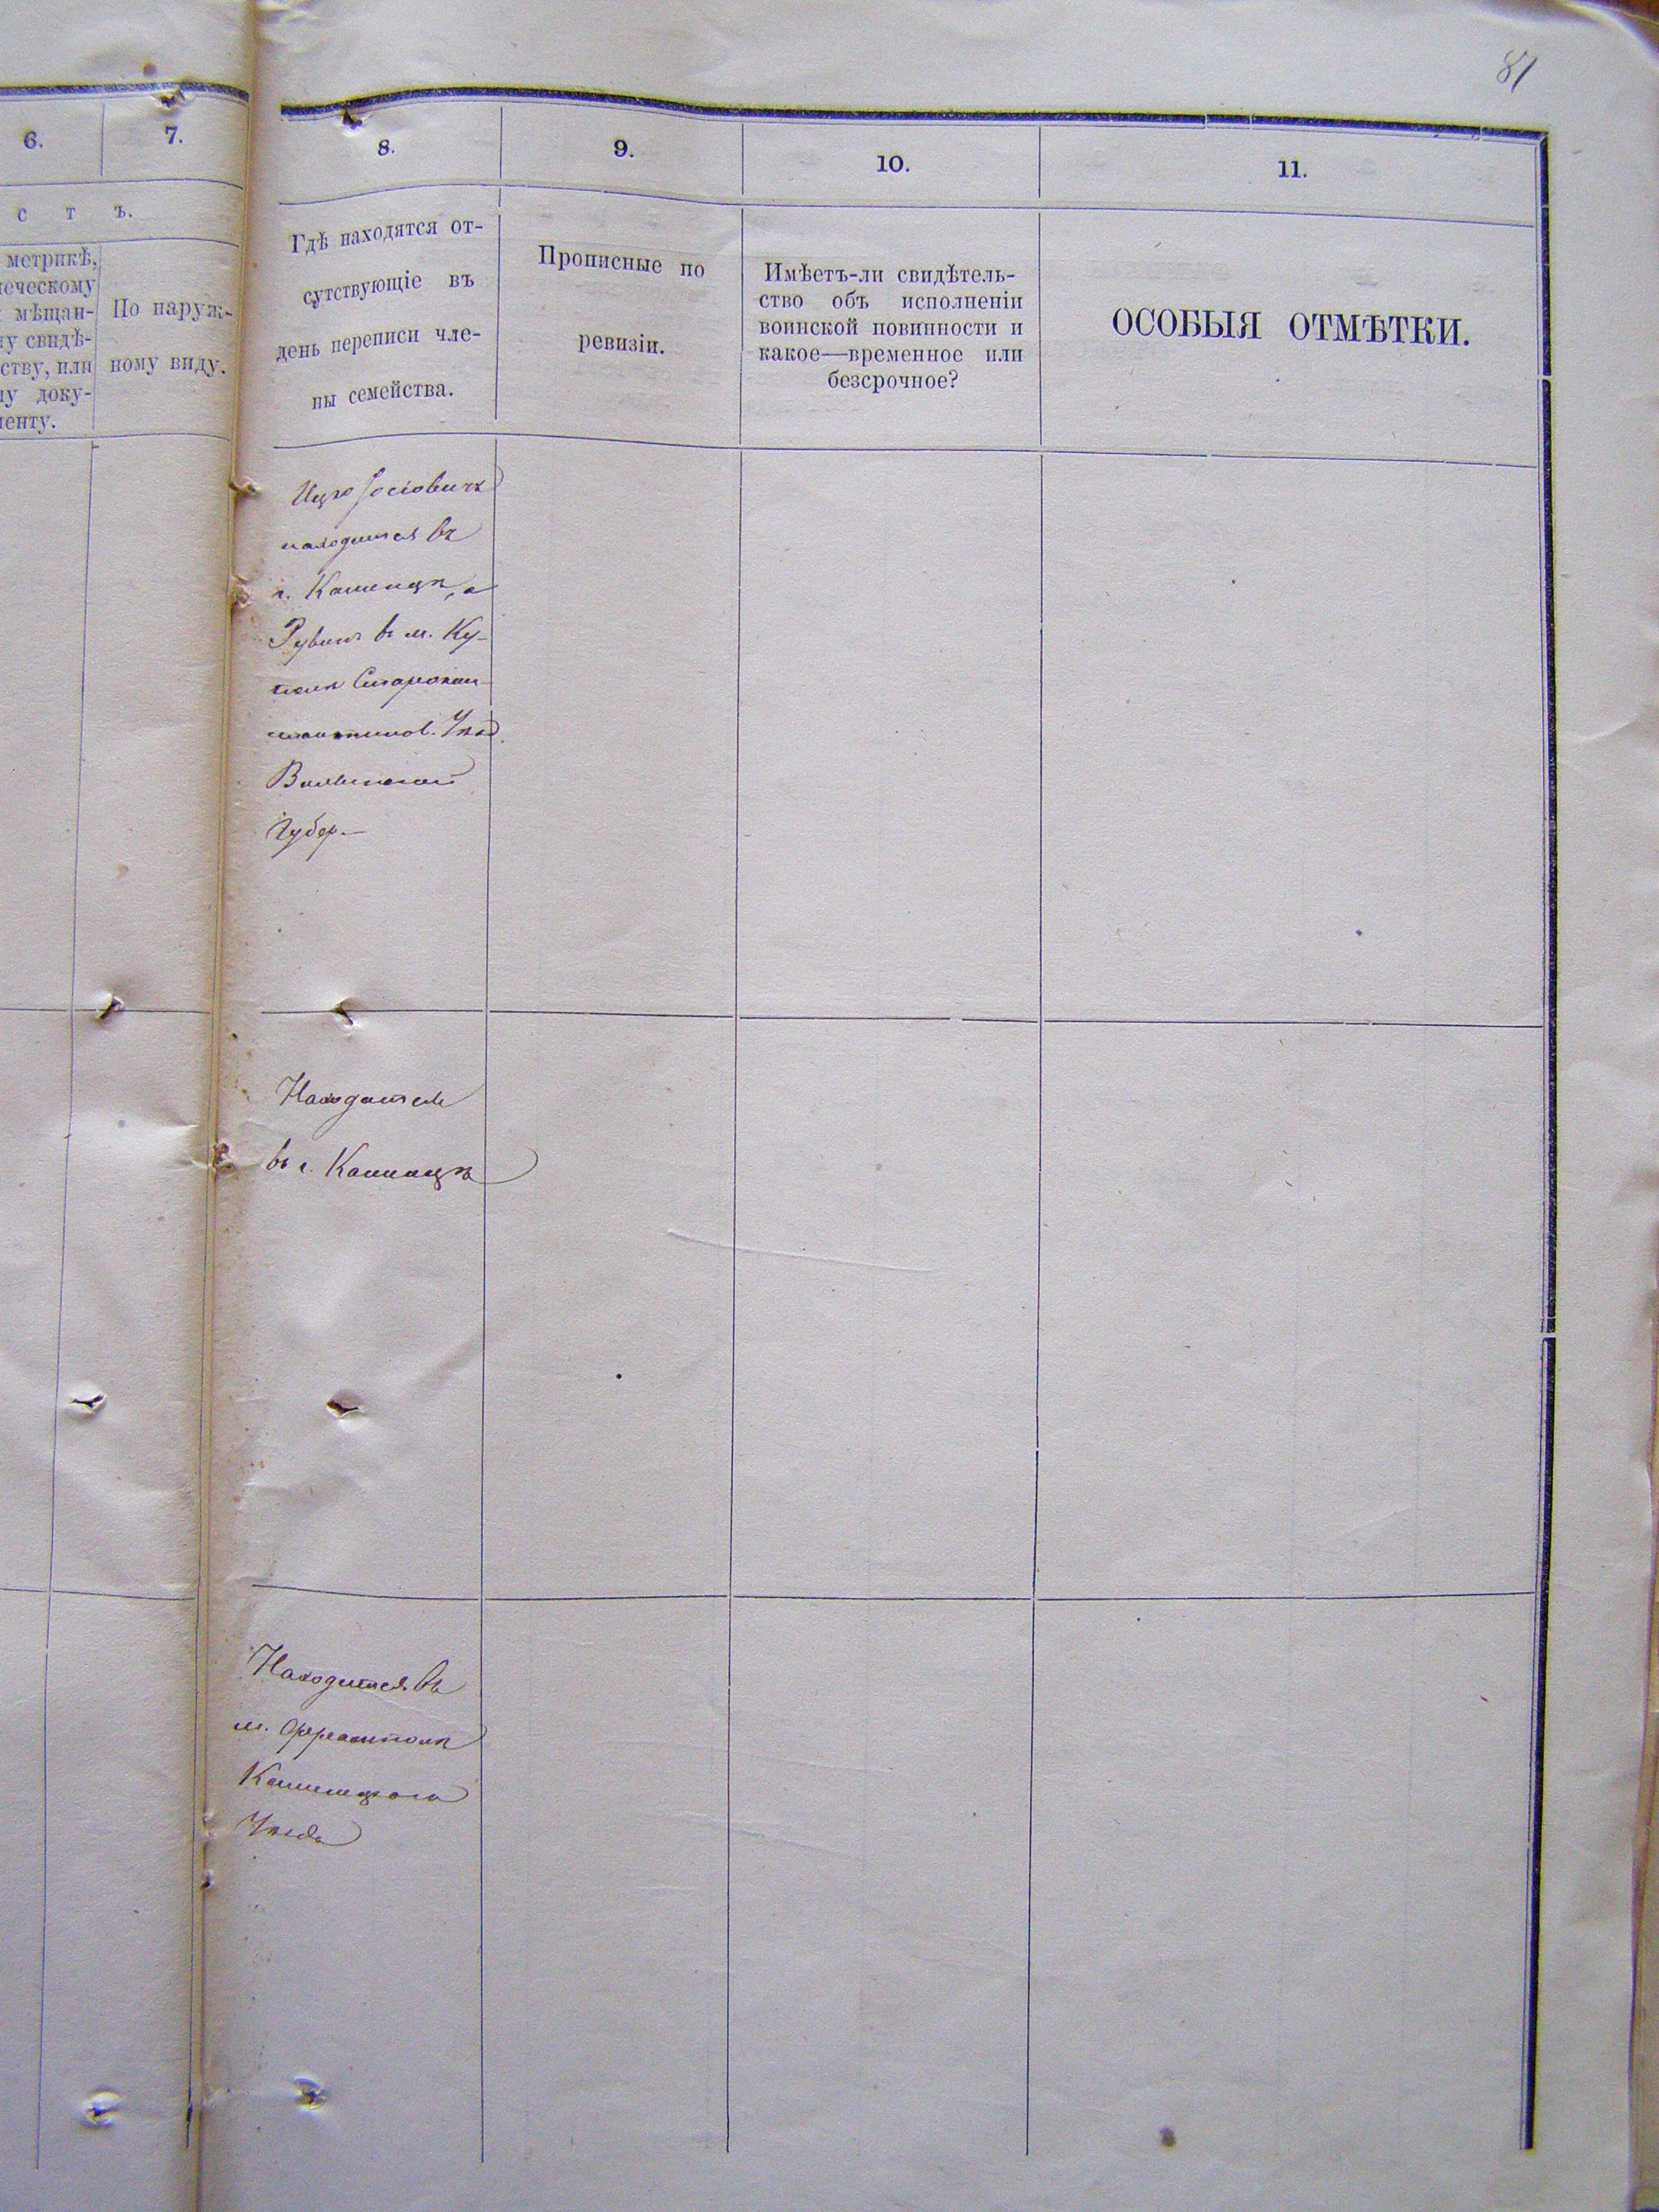 81
6.
7.
8.
9.
10.
11.
с т ъ.
метрикѣ,
мѣщан-
свидѣ-
или
доку-
По наруж-
ному виду.
Гдѣ находятся от-
сутствующіе въ
день переписи чле-
ны семейства.
Прописные по
ревизіи.
Имѣетъ-ли свидѣтель-
ство объ исполненіи
воинской повинности и
какое—временное или
безсрочное?
ОСОБЫЯ ОТМѢТКИ.
Ицко Іосіовичъ
находится въ
г. Каменцѣ, а
Рувинъ в м. Ку-
полѣ Старокон-
стантинов. Уѣзд.
Волынской
Губер.—
Находятся
въ г. Каменцѣ
Находится въ
м. Фрамполѣ
Каменецкого
Уѣзда